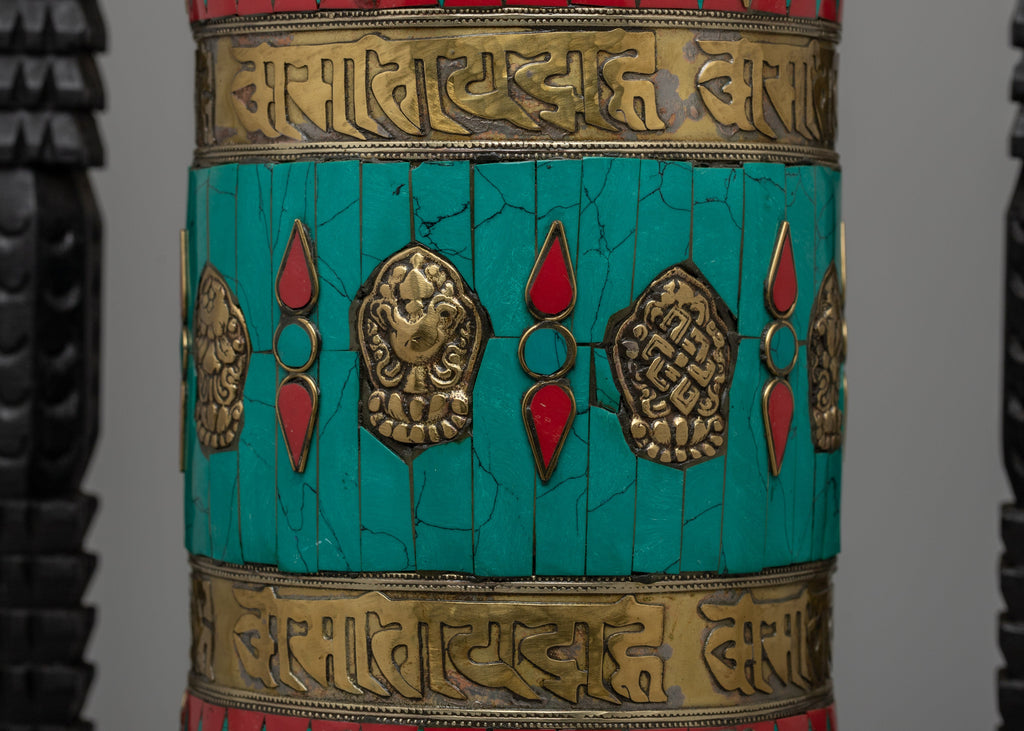 ॐ मणि पद्मे हूँ ॐ म
ॐ मणि पद्मे हूँ ॐ म